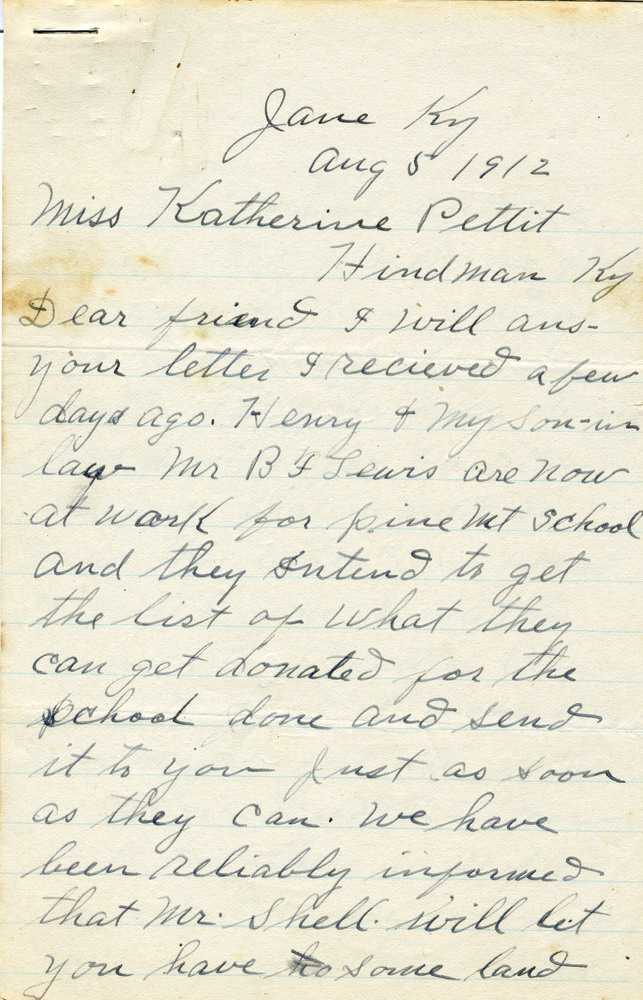 Jane Ky
Aug 5 1912
Miss Katherine Pettit
Hindman Ky
Dear friend I will ans-
your letter I recieved a few
days ago. Henry & my son-in
law Mr B F Lewis are now
at work for pine Mt School
and they intend to get
the list of what they
can get donated for the
School done and send
it to you Just as soon
as they can. We have
been reliably informed
that Mr. Shell. will let
you have some land